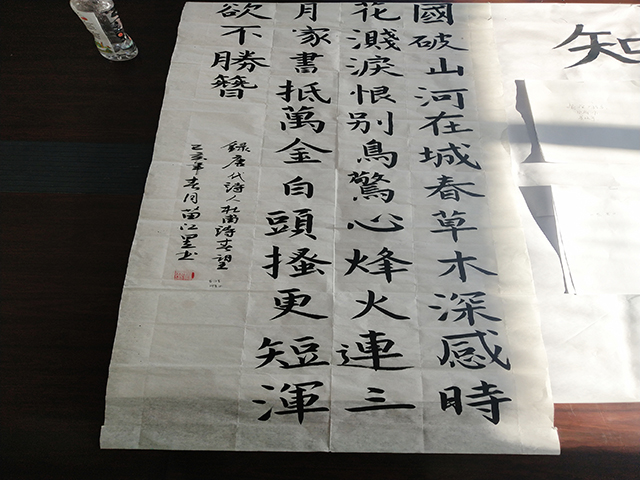 知
國破山河在城春草木深感時
花濺淚恨别鳥驚心烽火連三
月家書抵萬金白頭搔更短渾
欲不勝簪
錄唐代詩人杜甫詩春望
亥年春月苗江书